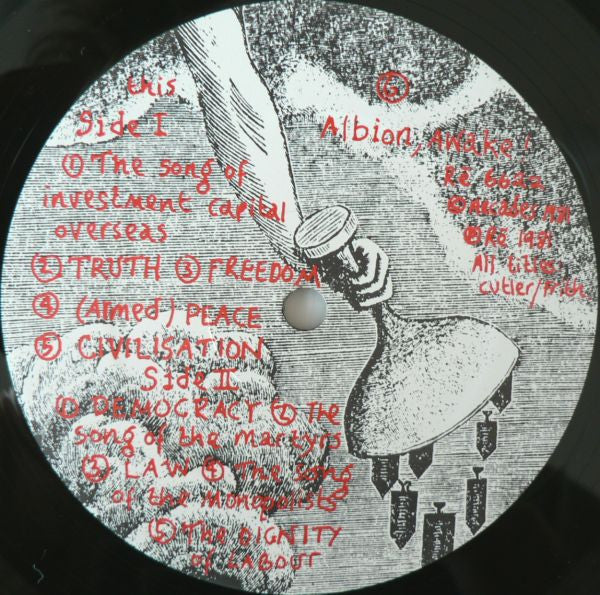 this
Side I
① The song of
investment capital
overseas
② TRUTH ③ FREEDOM
④ (Armed) PEACE
⑤ CIVILISATION
Side II
① DEMOCRACY ② The
song of the martyrs
③ LAW ④ The song
of the Monopolists
⑤ The DIGNITY
of LABOUR
⑥
Albion, AWake!
Rē 6622
Ⓟ Recabes 1981
Ⓒ Rē 1981
All titles
cutler/frith